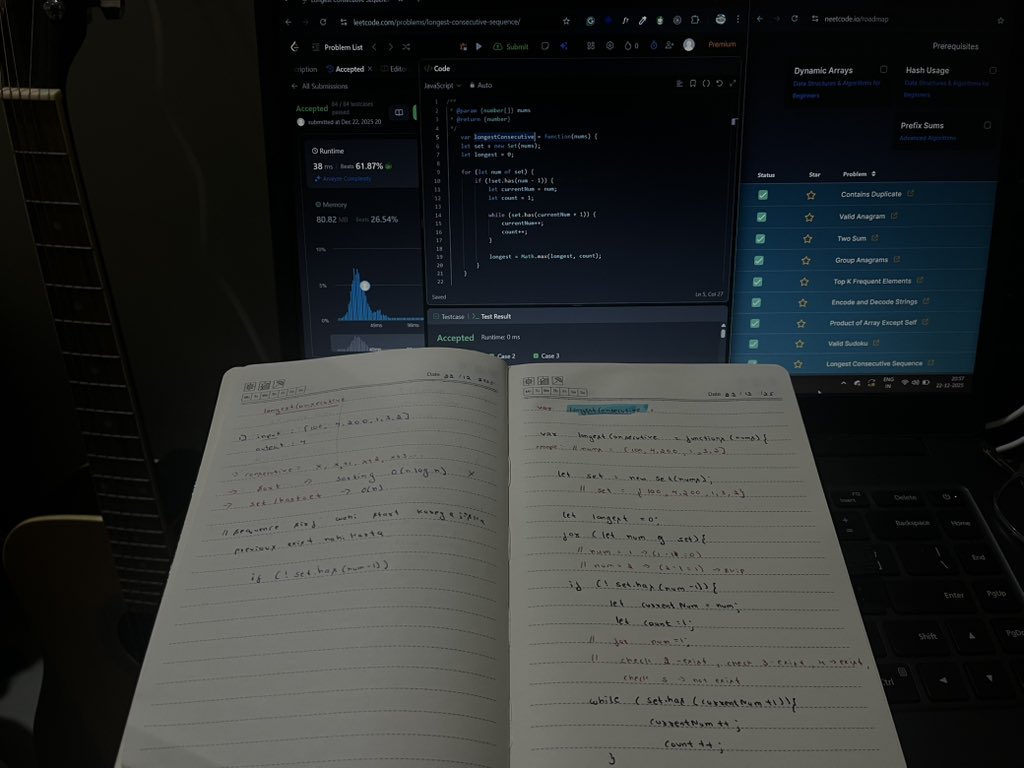 leetcode.com/problems/longest-consecutive-sequence/
Problem List
Submit
0
Premium
Accepted
All Submissions
Accepted
84 / 84 testcases passed
submitted at Dec 22, 2025 20
Runtime
38 ms Beats 61.87%
Analyze Complexity
Memory
80.82 MB Beats 26.54%
10%
5%
0%
Code
JavaScript
Auto
1 /**
2 * @param {number[]} nums
3 * @return {number}
4 */
5 var longestConsecutive = function(nums) {
6 let set = new Set(nums);
7 let longest = 0;
8
9 for (let num of set) {
10 if (!set.has(num - 1)) {
11 let currentNum = num;
12 let count = 1;
13
14 while (set.has(currentNum + 1)) {
15 currentNum++;
16 count++;
17 }
18
19 longest = Math.max(longest, count);
20 }
21 }
22
Saved
Ln 5, Col 27
Testcase
Test Result
Accepted Runtime: 0 ms
Case 2 Case 3
neetcode.io/roadmap
Prerequisites
Dynamic Arrays
Data Structures & Algorithms for Beginners
Hash Usage
Data Structures & Algorithms for Beginners
Prefix Sums
Advanced Algorithms
Status Star Problem
Contains Duplicate
Valid Anagram
Two Sum
Group Anagrams
Top K Frequent Elements
Encode and Decode Strings
Product of Array Except Self
Valid Sudoku
Longest Consecutive Sequence
ENG
IN
20:57
22-12-2025
Date 22 / 12 / 2025
longestConsecutive
input : [100, 4, 200, 1, 3, 2]
output : 4
-> consecutive : x, x+1, x+2, x+3...
-> sort -> sorting O(n log n) x
-> set / hashset -> O(n)
// sequence sirf wahi start karega jiska
previous exist nahi karta
if (! set.has(num-1))
Date 22 / 12 / 25
var longestConsecutive ;
var longestConsecutive = functions (nums) {
// nums = [100, 4, 200, 1, 3, 2]
let set = new set(nums);
// set = {100, 4, 200, 1, 3, 2}
let longest = 0;
for (let num of set) {
if (! set.has(num-1)) {
let currentNum = num;
let count = 1;
// for num=1;
// check 2 -> exist, check 3 -> exist, 4 -> exist,
check 5 -> not exist
while (set.has (currentNum +1)) {
currentNum ++;
count ++;
}
Insert
Delete
Backspace
Home
End
Enter
PgUp
Shift
PgDn
Ctrl